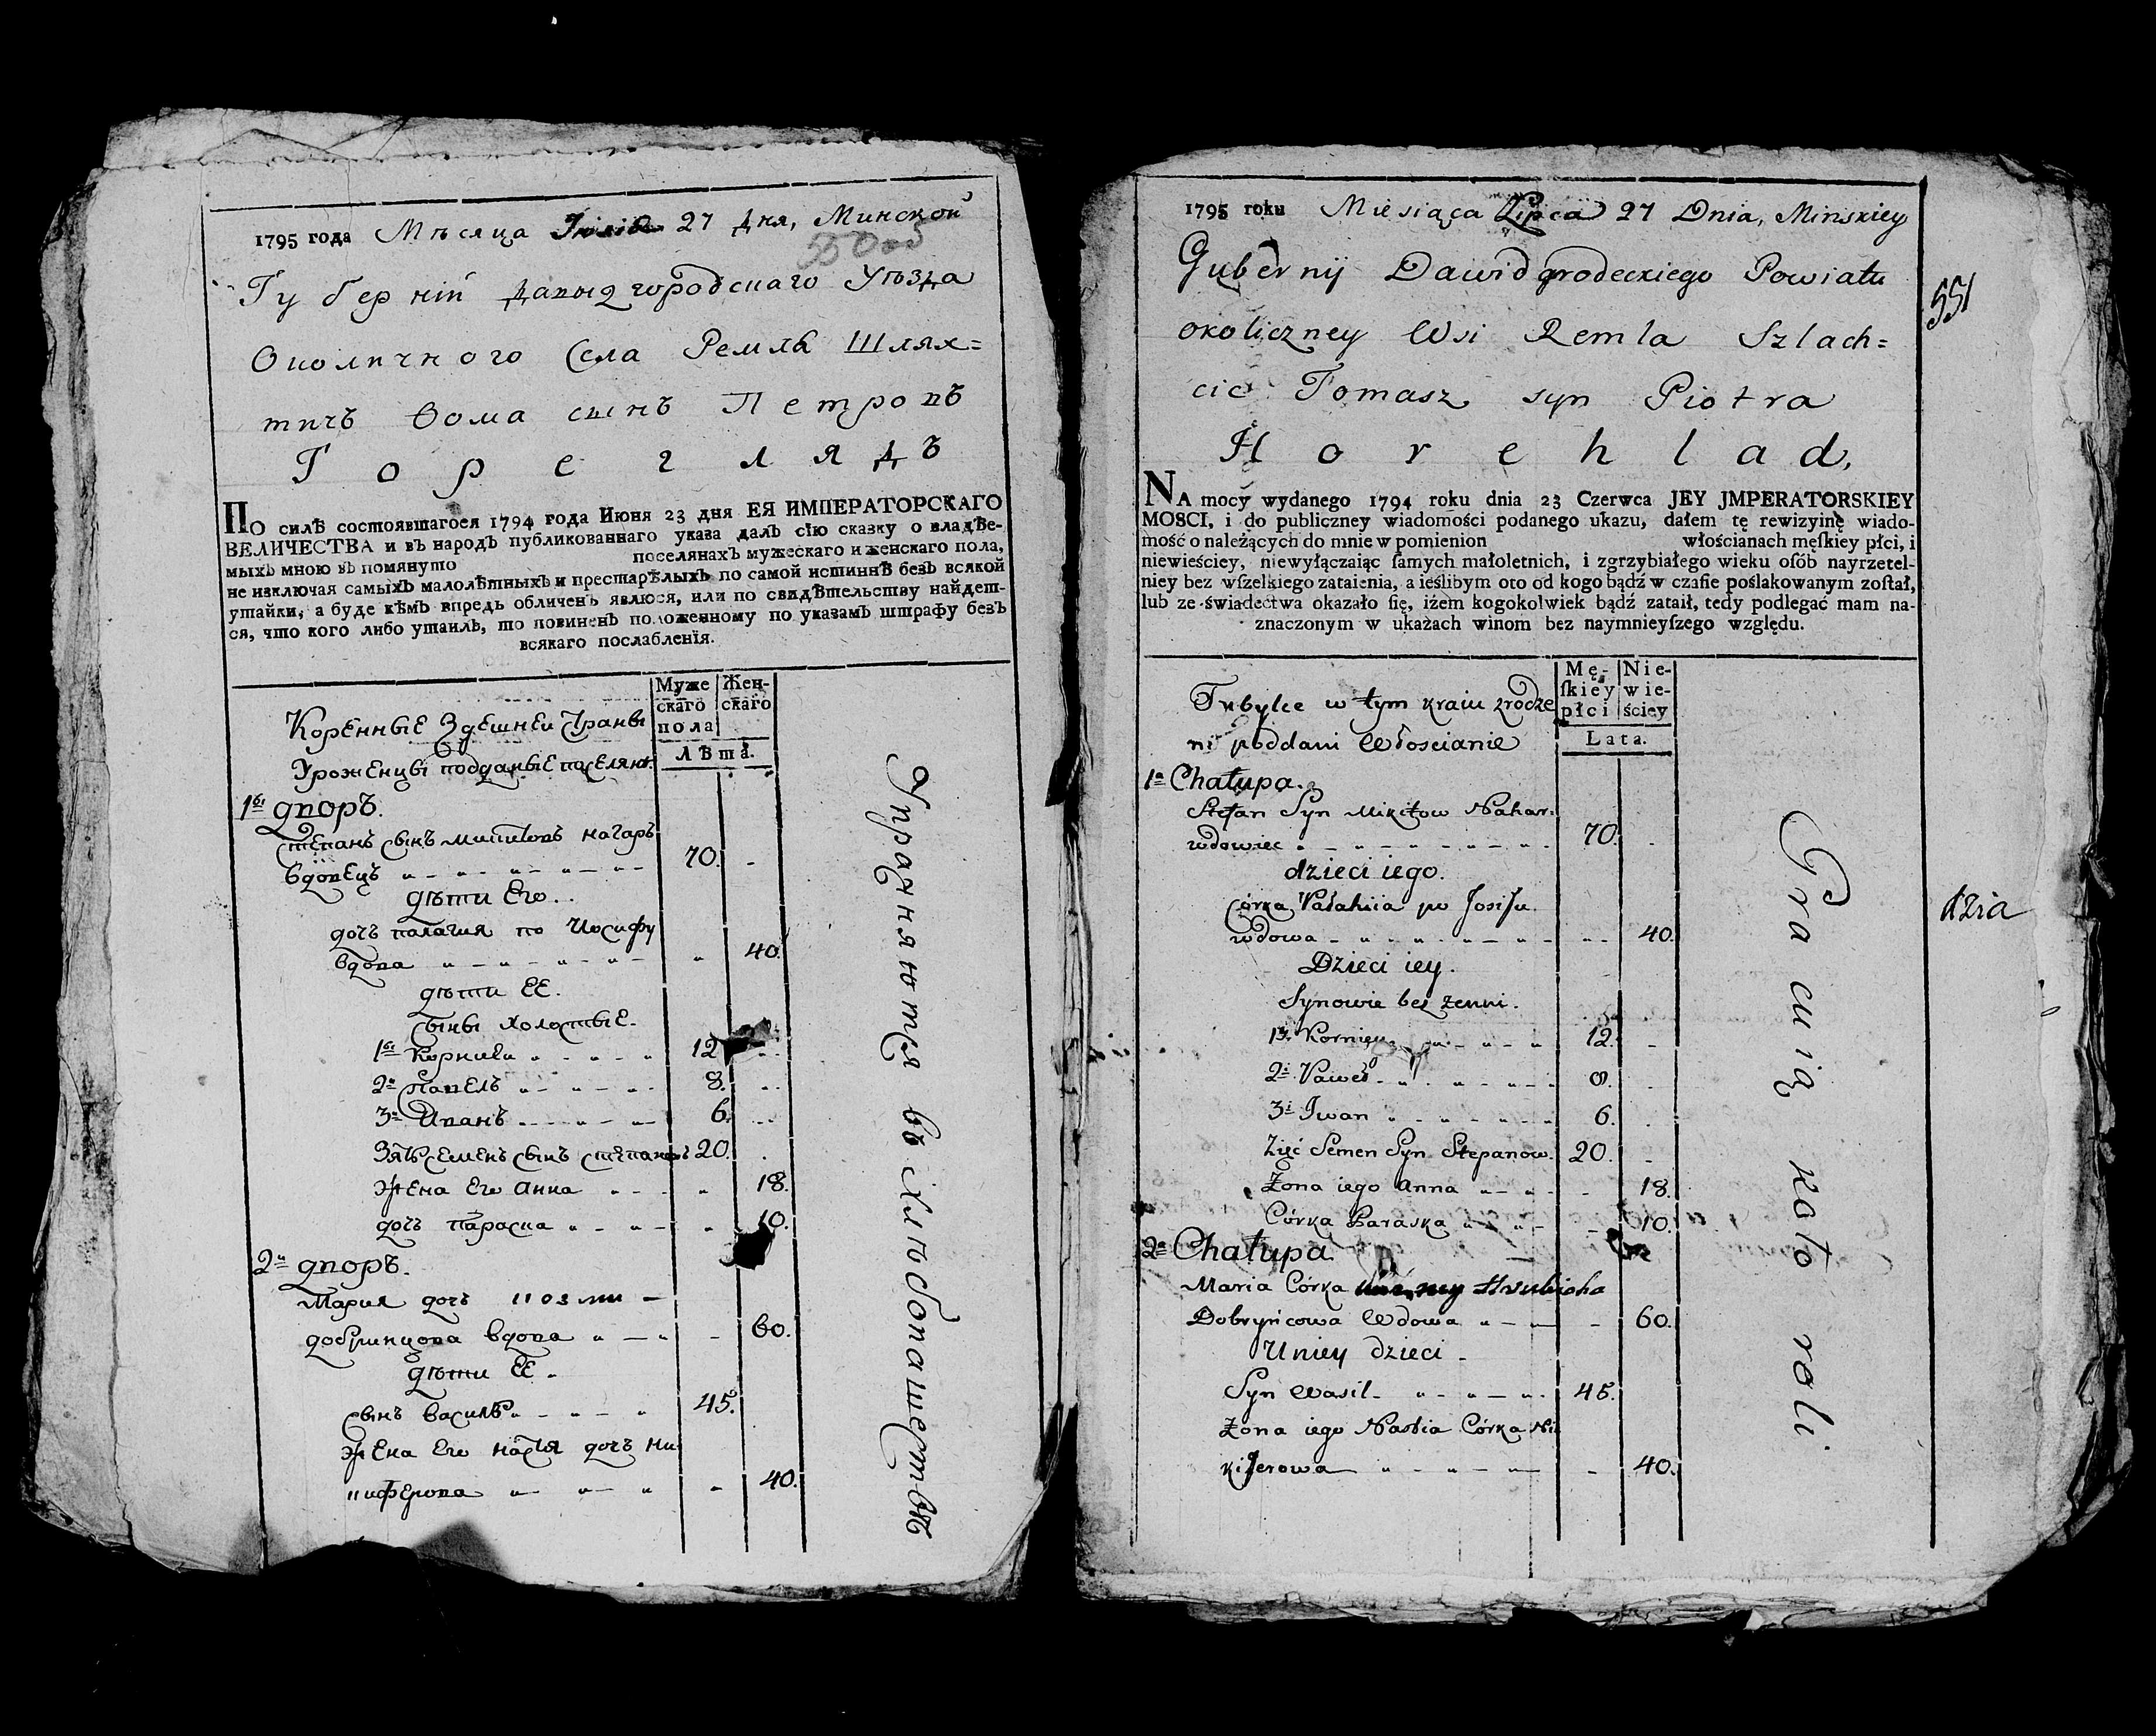 1795 года Мѣсяца Іюлія 27 дня, Минской
550об
Губерніи Давыдгородскаго Уѣзда
Околичного Села Ремля Шлях=
тичь Ѳома сынъ Петровъ
Гореглядъ
По силѣ состоявшагося 1794 года Июня 23 дня ЕЯ ИМПЕРАТОРСКАГО
ВЕЛИЧЕСТВА и въ народъ публикованнаго указа далъ сїю сказку о владѣе-
мыхъ мною въ помянуто поселянахъ мужескаго и женскаго пола,
не изключая самыхъ малолѣтныхъ и престарѣлыхъ по самой истиннѣ безъ всякой
утайки, а буде кѣмъ впредь обличенъ явлюся, или по свидѣтельству найдет-
ся, что кого либо утаилъ, то повиненъ положенному по указамъ штрафу безъ
всякаго послабленїя.
Муже скаго пола
Жен- скаго
Лѣта.
Коренные Здешней Страны
Уроженцы подданые поселяне.
1й дворъ.
Степанъ сынъ микитовъ нагаръ
вдовецъ 70.
дѣти Его.
дочъ палагия по Иосифу
вдова 40.
дѣти ЕЕ.
сыны холостые.
1й Корнией 12
2й Павелъ 8.
3й Иванъ 6.
Зять семенъ сынъ степановъ 20.
Жена Его анна 18.
дочъ параска 10.
2й дворъ.
Мария дочъ
добринцова вдова 60.
дѣти ЕЕ.
сынъ василь 45.
Жена Его настя дочъ ни
киферова 40.
Упражняются въ хлѣбопашествѣ
1795 roku Miesiąca Lipca 27 Dnia, Minskiey
Gubernij Dawidgrodeckiego Powiatu
551
okoliczney Wsi Remla Szlach=
cic Tomasz syn Piotra
Horehlad,
NA mocy wydanego 1794 roku dnia 23 Czerwca JEY JMPERATORSKIEY
MOSCI, i do publiczney wiadomości podanego ukazu, dałem tę rewizyinę wiado-
mość o należących do mnie w pomienion włościanach męſkiey płci, i
niewieściey, niewyłączaiąc ſamych małoletnich, i zgrzybiałego wieku oſób nayrzetel-
niey bez wſzelkiego zataienia, a ieślibym oto od kogo bądź w czaſie poślakowanym zoſtał,
lub ze świadectwa okazało ſię, iżem kogokolwiek bądź zataił, tedy podlegać mam na-
znaczonym w ukażach winom bez naymnieyſzego względu.
Mę- ſkiey płci
Nie- wie- ściey
Lata.
Tubylce w tym kraiu zrodze
ni poddani Włoscianie
1a Chałupa.
Stefan Syn Mikitow Nahar
wdowiec 70.
dzieci iego.
Córka Pałahiia po Josifu
wdowa 40.
Dzieci iey.
Synowie bez żenni.
1szy Korniey 12.
2i Paweł 8.
3i Iwan 6.
Zięć Semen Syn Stepanow. 20.
Żona iego Anna 18.
Córka Paraska 10.
2a Chałupa
Maria Córka
Dobryńcowa Wdowa 60.
U niey dzieci
Syn Wasil 45.
Żona iego Nastia Córka Ni
kiferowa 40.
Pracuią koło roli
dzia